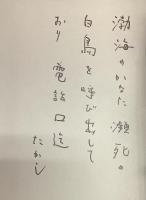 渤海のかなた瀕死の
白鳥を呼び出して
おり電話口迄
たかし